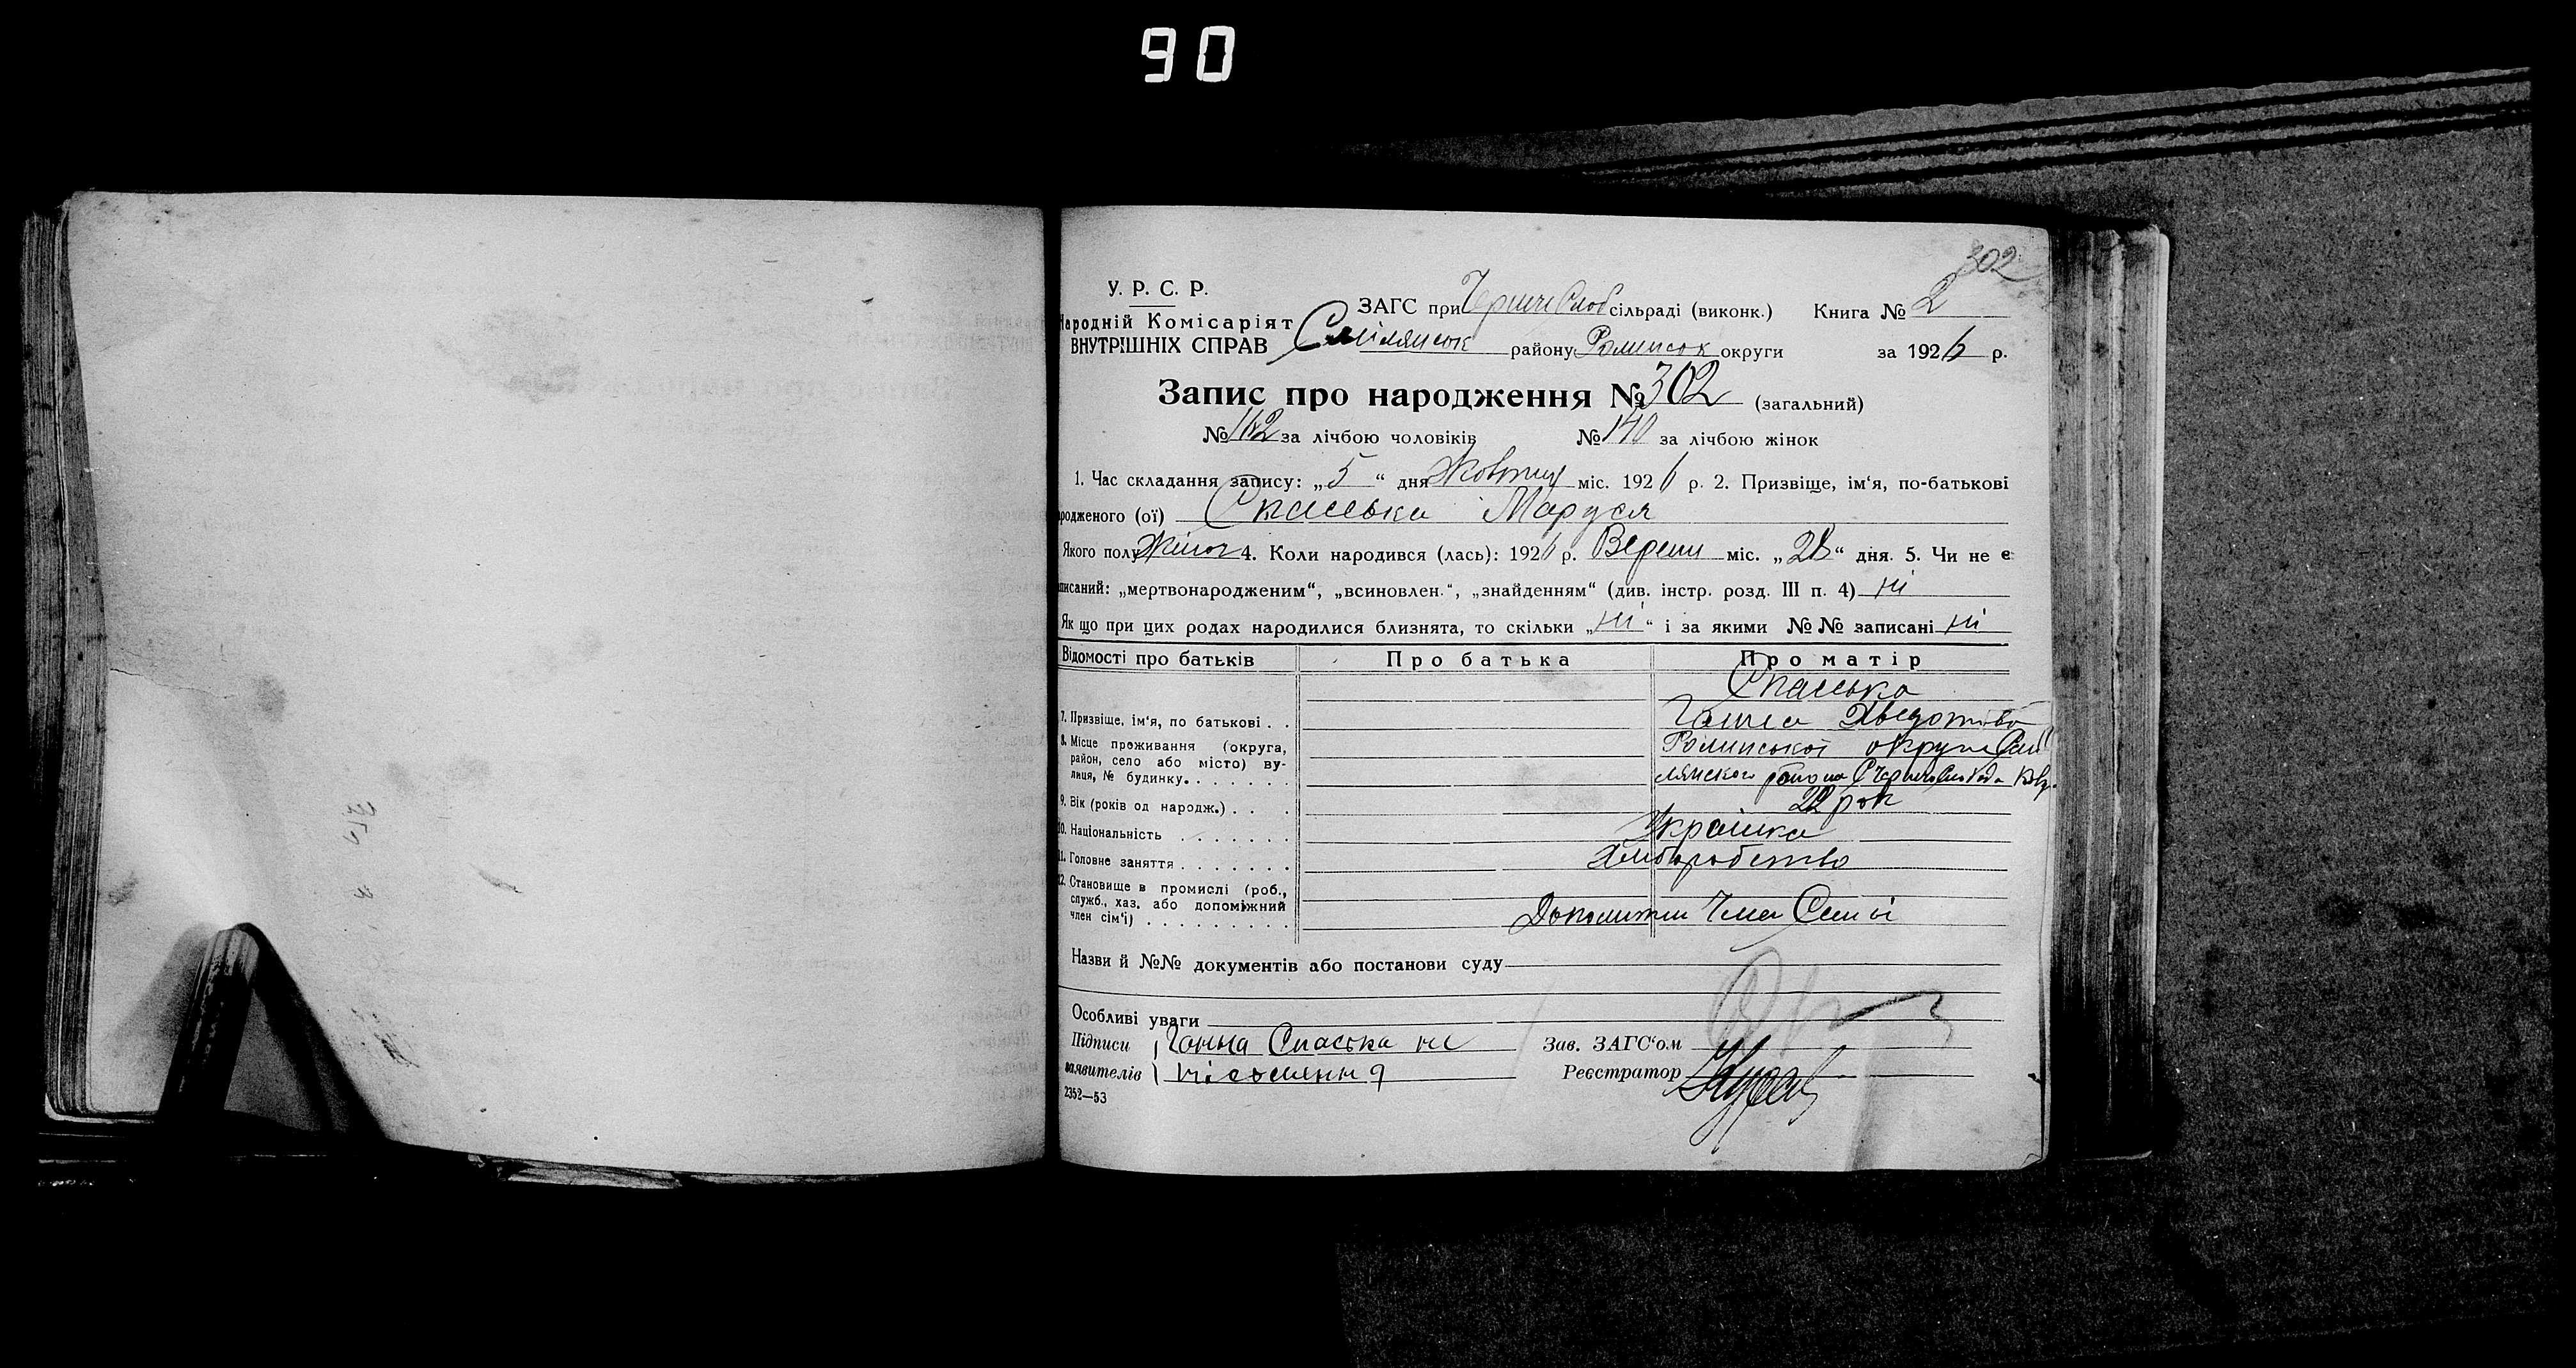 90
302
У. Р. С. Р.
Народній Комісаріят
ВНУТРІШНІХ СПРАВ
ЗАГС при Черничо Слоб сільраді (виконк.) Книга № 2
Смілянськ району Роменськ округи за 1926 р.
Запис про народження № 302 (загальний)
№ 162 за лічбою чоловіків № 140 за лічбою жінок
1. Час складання запису: „5“ дня Жовтня міс. 1926 р. 2. Призвіще, ім‘я, по-батькові
родженого (ої) Спаська Маруся
Якого полу Жіноч 4. Коли народився (лась): 1926 р. Вересн міс. „28“ дня. 5. Чи не є
писаний: „мертвонародженим“, „всиновлен.“, „знайденням“ (див. інстр. розд. III п. 4) ні
Як що при цих родах народилися близнята, то скільки „ні“ і за якими №№ записані ні
Відомості про батьків Про батька Про матір
Спаська
7. Призвіще, ім‘я, по батькові . . Ганна Хведотовна
8. Місце проживання (округа, Роменської округи Смі
район, село або місто) ву-
лиця, № будинку. . . . . . лянского району
9. Вік (років од народж.) . . . 22 рок
10. Національність . . . . . . . Українка
11. Головне заняття . . . . . . . Хліборобство
12. Становище в промислі (роб.,
служб., хаз. або допоміжний
член сім‘ї) . . . . . . . . . Допоміжни Член Семьі
Назви й №№ документів або постанови суду
Особливі уваги
Підписи Ганна Спаська не Зав. ЗАГС‘ом
заявителів письменна Реєстратор
2352—53